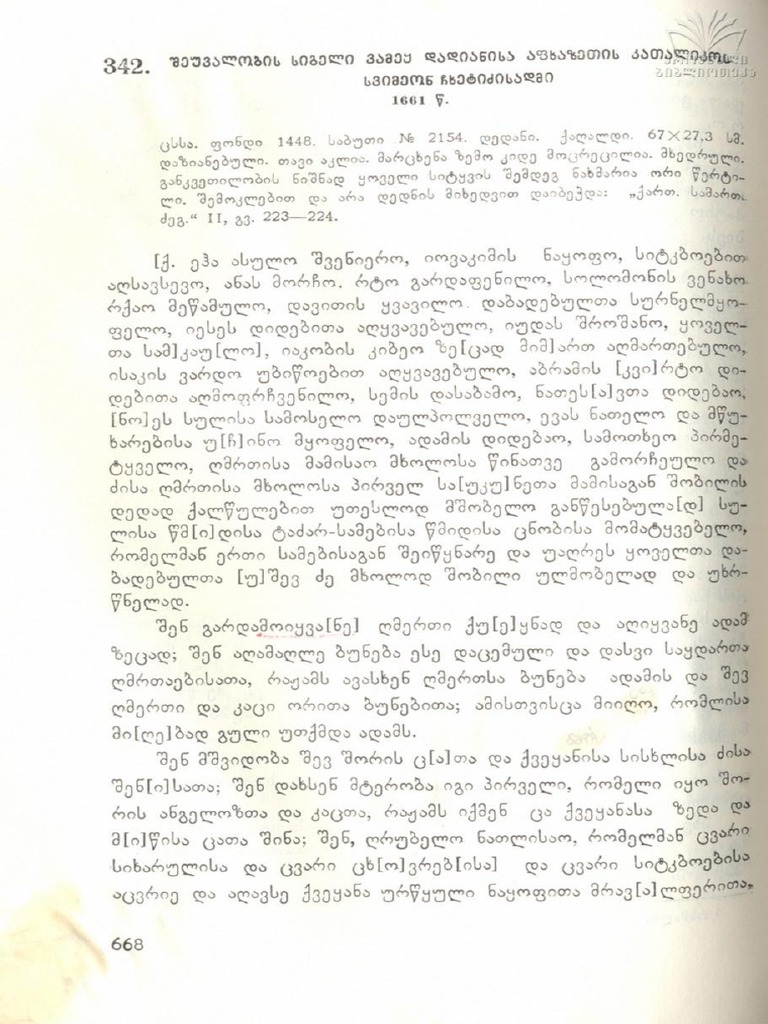 ეროვნული
ბიბლიოთეკა
342. შეუვალობის სიგელი ვამეყ დადიანისა აფხაზეთის კათალიკოს
სვიმეონ ჩხეტიძისადმი
1661 წ.
ცსსა. ფონდი 1448. საბუთი № 2154. დედანი. ქაღალდი. 67×27,3 სმ.
დაზიანებული. თავი აკლია. მარცხენა ზემო კიდე მოცრეცილია. მხედრული.
განკვეთილობის ნიშნად ყოველი სიტყვის შემდეგ ნახმარია ორი წერტი-
ლი. შემოკლებით და არა დედნის მიხედვით დაიბეჭდა: „ქართ. სამართ.
ძეგ.“ II, გვ. 223—224.
[ქ. ეჰა ასულო შვენიერო, იოვაკიმის ნაყოფო, სიტკბოებით
აღსავსევო, ანას მორჩო. რტო გარდაფენილო, სოლომონის ვენახო
რქაო მეწამულო, დავითის ყვავილო. დაბადებულთა სურნელმყო-
ფელო, იესეს დიდებითა აღყვავებულო, იუდას შროშანო, ყოველ-
თა სამ]კაუ[ლო], იაკობის კიბეო ზე[ცად მიმ]ართ აღმართებულო,
ისაკის ვარდო უბიწოებით აღყვავებულო, აბრამის [კვი]რტო დი-
დებითა აღმოფრჩვენილო, სემის დასაბამო, ნათეს[ა]ვთა დიდებაო,
[ნო]ეს სულისა სამოსელო დაულპოლველო, ევას ნათელო და მწუ-
ხარებისა უ[ჩ]ინო მყოფელო, ადამის დიდებაო, სამოთხეო პირმე-
ტყველო, ღმრთისა მამისაო მხოლოსა წინათვე გამორჩეულო და
ძისა ღმრთისა მხოლოსა პირველ სა[უკუ]ნეთა მამისაგან შობილის
დედად ქალწულებით უთესლოდ მშობელო განწესებულა[დ] სუ-
ლისა წმ[ი]დისა ტაძარ-სამებისა წმიდისა ცნობისა მომატყვებელო,
რომელმან ერთი სამებისაგან შეიწყნარე და უაღრეს ყოველთა და-
ბადებულთა [უ]შევ ძე მხოლოდ შობილი ულმობელად და უხრ-
წნელად.
შენ გარდამოიყვა[ნე] ღმერთი ქუ[ე]ყნად და აღიყვანე ადამ
ზეცად; შენ აღამაღლე ბუნება ესე დაცემული და დასვი საყდართა
ღმრთაებისათა, რაჟამს ავასხენ ღმერთსა ბუნება ადამის და შევ
ღმერთი და კაცი ორითა ბუნებითა; ამისთვისცა მიიღო, რომლისა
მი[ღე]ბად გული უთქმდა ადამს.
შენ მშვიდობა შევ შორის ც[ა]თა და ქვეყანისა სისხლისა ძისა
შენ[ი]სათა; შენ დახსენ მტერობა იგი პირველი, რომელი იყო შო-
რის ანგელოზთა და კაცთა, რაჟამს იქმენ ცა ქვეყანასა ზედა და
მ[ი]წისა ცათა შინა; შენ, ღრუბელო ნათლისაო, რომელმან ცვარი
სიხარულისა და ცვარი ცხ[ო]ვრებ[ისა] და ცვარი სიტკბოებისა
აცვრიე და აღავსე ქვეყანა ურწყული ნაყოფითა მრავ[ა]ლფერითა,
668